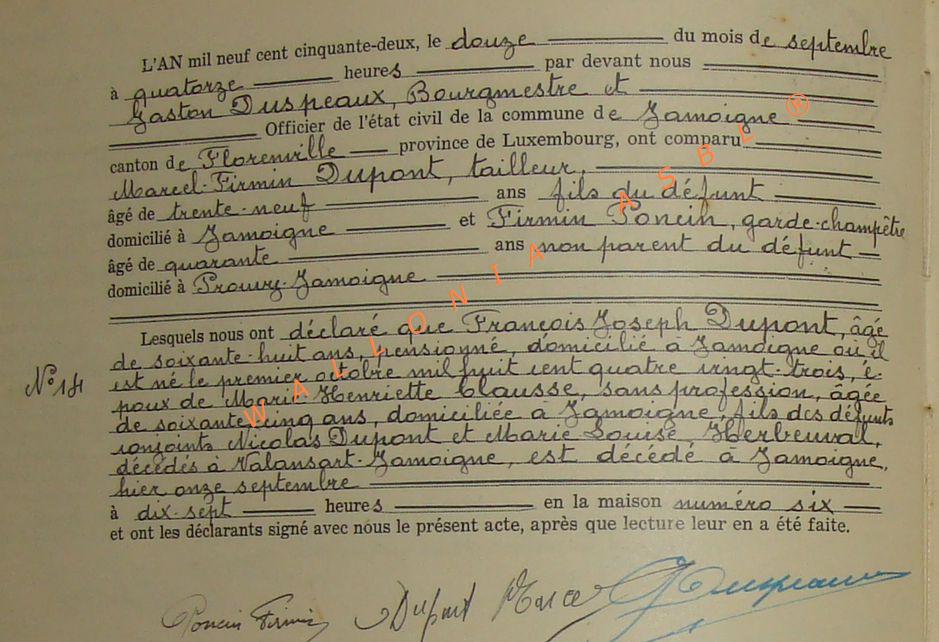 L'AN mil neuf cent cinquante-deux, le douze du mois de septembre
à quatorze heures par devant nous
Gaston Duspeaux, Bourgmestre et
Officier de l'état civil de la commune de Jamoigne
canton de Florenville province de Luxembourg, ont comparu
Marcel-Firmin Dupont, tailleur,
âgé de trente-neuf ans fils du défunt
domicilié à Jamoigne et Firmin Poncin, garde-champêtre
âgé de quarante ans non parent du défunt
domicilié à Prouvy-Jamoigne
Lesquels nous ont déclaré que François Joseph Dupont, âgé
de soixante-huit ans, pensionné, domicilié à Jamoigne où il
N° 18
est né le premier octobre mil huit cent quatre vingt-trois, é-
poux de Marie-Henriette Clausse, sans profession, âgée
de soixante-cinq ans, domiciliée à Jamoigne, fils des défunts
conjoints Nicolas Dupont et Marie Louise Herbeuval,
décédés à Valansart-Jamoigne, est décédé à Jamoigne,
hier onze septembre
à dix-sept heures en la maison numéro six
et ont les déclarants signé avec nous le présent acte, après que lecture leur en a été faite.
Poncin Firmin Dupont Marcel G Duspeaux
WALLONIA ASBL ®